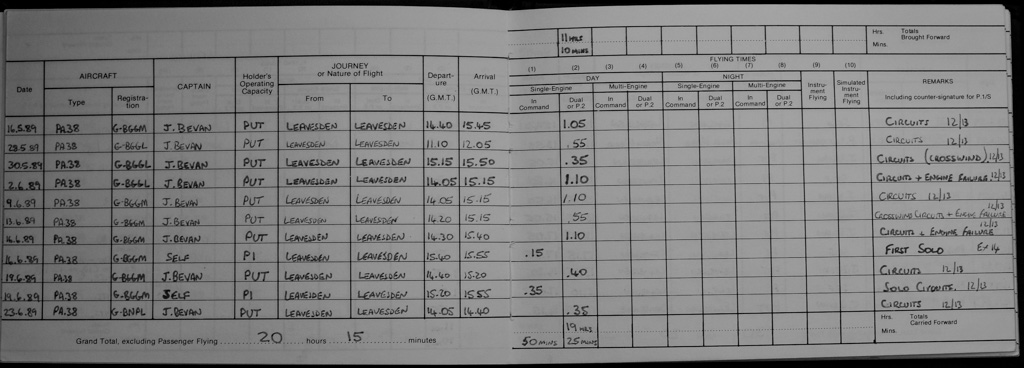 11 HRS
10 MINS
Hrs. Totals
Mins. Brought Forward
Date AIRCRAFT CAPTAIN Holder's Operating Capacity JOURNEY or Nature of Flight Departure (G.M.T.) Arrival (G.M.T.) FLYING TIMES REMARKS
(1) (2) (3) (4) (5) (6) (7) (8) (9) (10)
DAY NIGHT Instrument Flying Simulated Instrument Flying
Single-Engine Multi-Engine Single-Engine Multi-Engine
Type Registration From To In Command Dual or P.2 In Command Dual or P.2 In Command Dual or P.2 In Command Dual or P.2 Including counter-signature for P.1/S
16.5.89 PA38 G-BGGM J. BEVAN PUT LEAVESDEN LEAVESDEN 14.40 15.45 1.05 CIRCUITS 12/13
28.5.89 PA38 G-BGGL J. BEVAN PUT LEAVESDEN LEAVESDEN 11.10 12.05 .55 CIRCUITS 12/13
30.5.89 PA.38 G-BGGL J. BEVAN PUT LEAVESDEN LEAVESDEN 15.15 15.50 .35 CIRCUITS (CROSSWIND) 12/13
2.6.89 PA.38 G-BGGL J. BEVAN PUT LEAVESDEN LEAVESDEN 14.05 15.15 1.10 CIRCUITS + ENGINE FAILURE 12/13
9.6.89 PA.38 G-BGGM J. BEVAN PUT LEAVESDEN LEAVESDEN 14.05 15.15 1.10 CIRCUITS 12/13
13.6.89 PA.38 G-BGGM J. BEVAN PUT LEAVESDEN LEAVESDEN 14.20 15.15 .55 CROSSWIND CIRCUITS + ENGINE FAILURE 12/13
16.6.89 PA.38 G-BGGM J. BEVAN PUT LEAVESDEN LEAVESDEN 14.30 15.40 1.10 CIRCUITS & ENGINE FAILURE 12/13
16.6.89 PA.38 G-BGGM SELF P1 LEAVESDEN LEAVESDEN 15.40 15.55 .15 FIRST SOLO Ex 14
19.6.89 PA.38 G-BGGM J. BEVAN PUT LEAVESDEN LEAVESDEN 14.40 15.20 .40 CIRCUITS 12/13
19.6.89 PA.38 G-BGGM SELF P1 LEAVESDEN LEAVESDEN 15.20 1555 .35 SOLO CIRCUITS. 12/13
23.6.89 PA.38 G-BNPL J. BEVAN PUT LEAVESDEN LEAVESDEN 14.05 14.40 .35 CIRCUITS 12/13
19 HRS Hrs. Totals
50 MINS 25 MINS Mins. Carried Forward
Grand Total, excluding Passenger Flying 20 hours 15 minutes